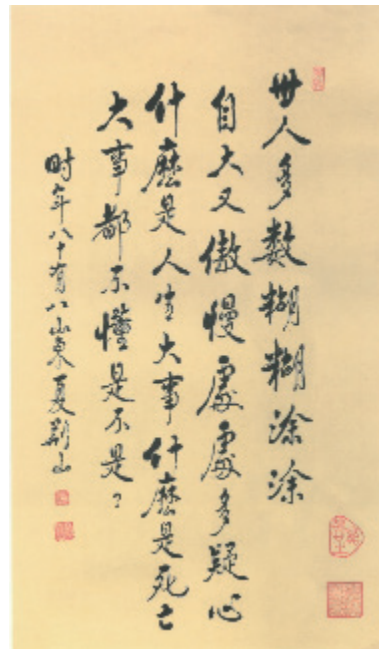 世人多数糊糊涂涂
自大又傲慢處處多疑心
什麽是人生大事什麽是死亡
大事都不懂是不是？
时年八十有八山東夏荆山